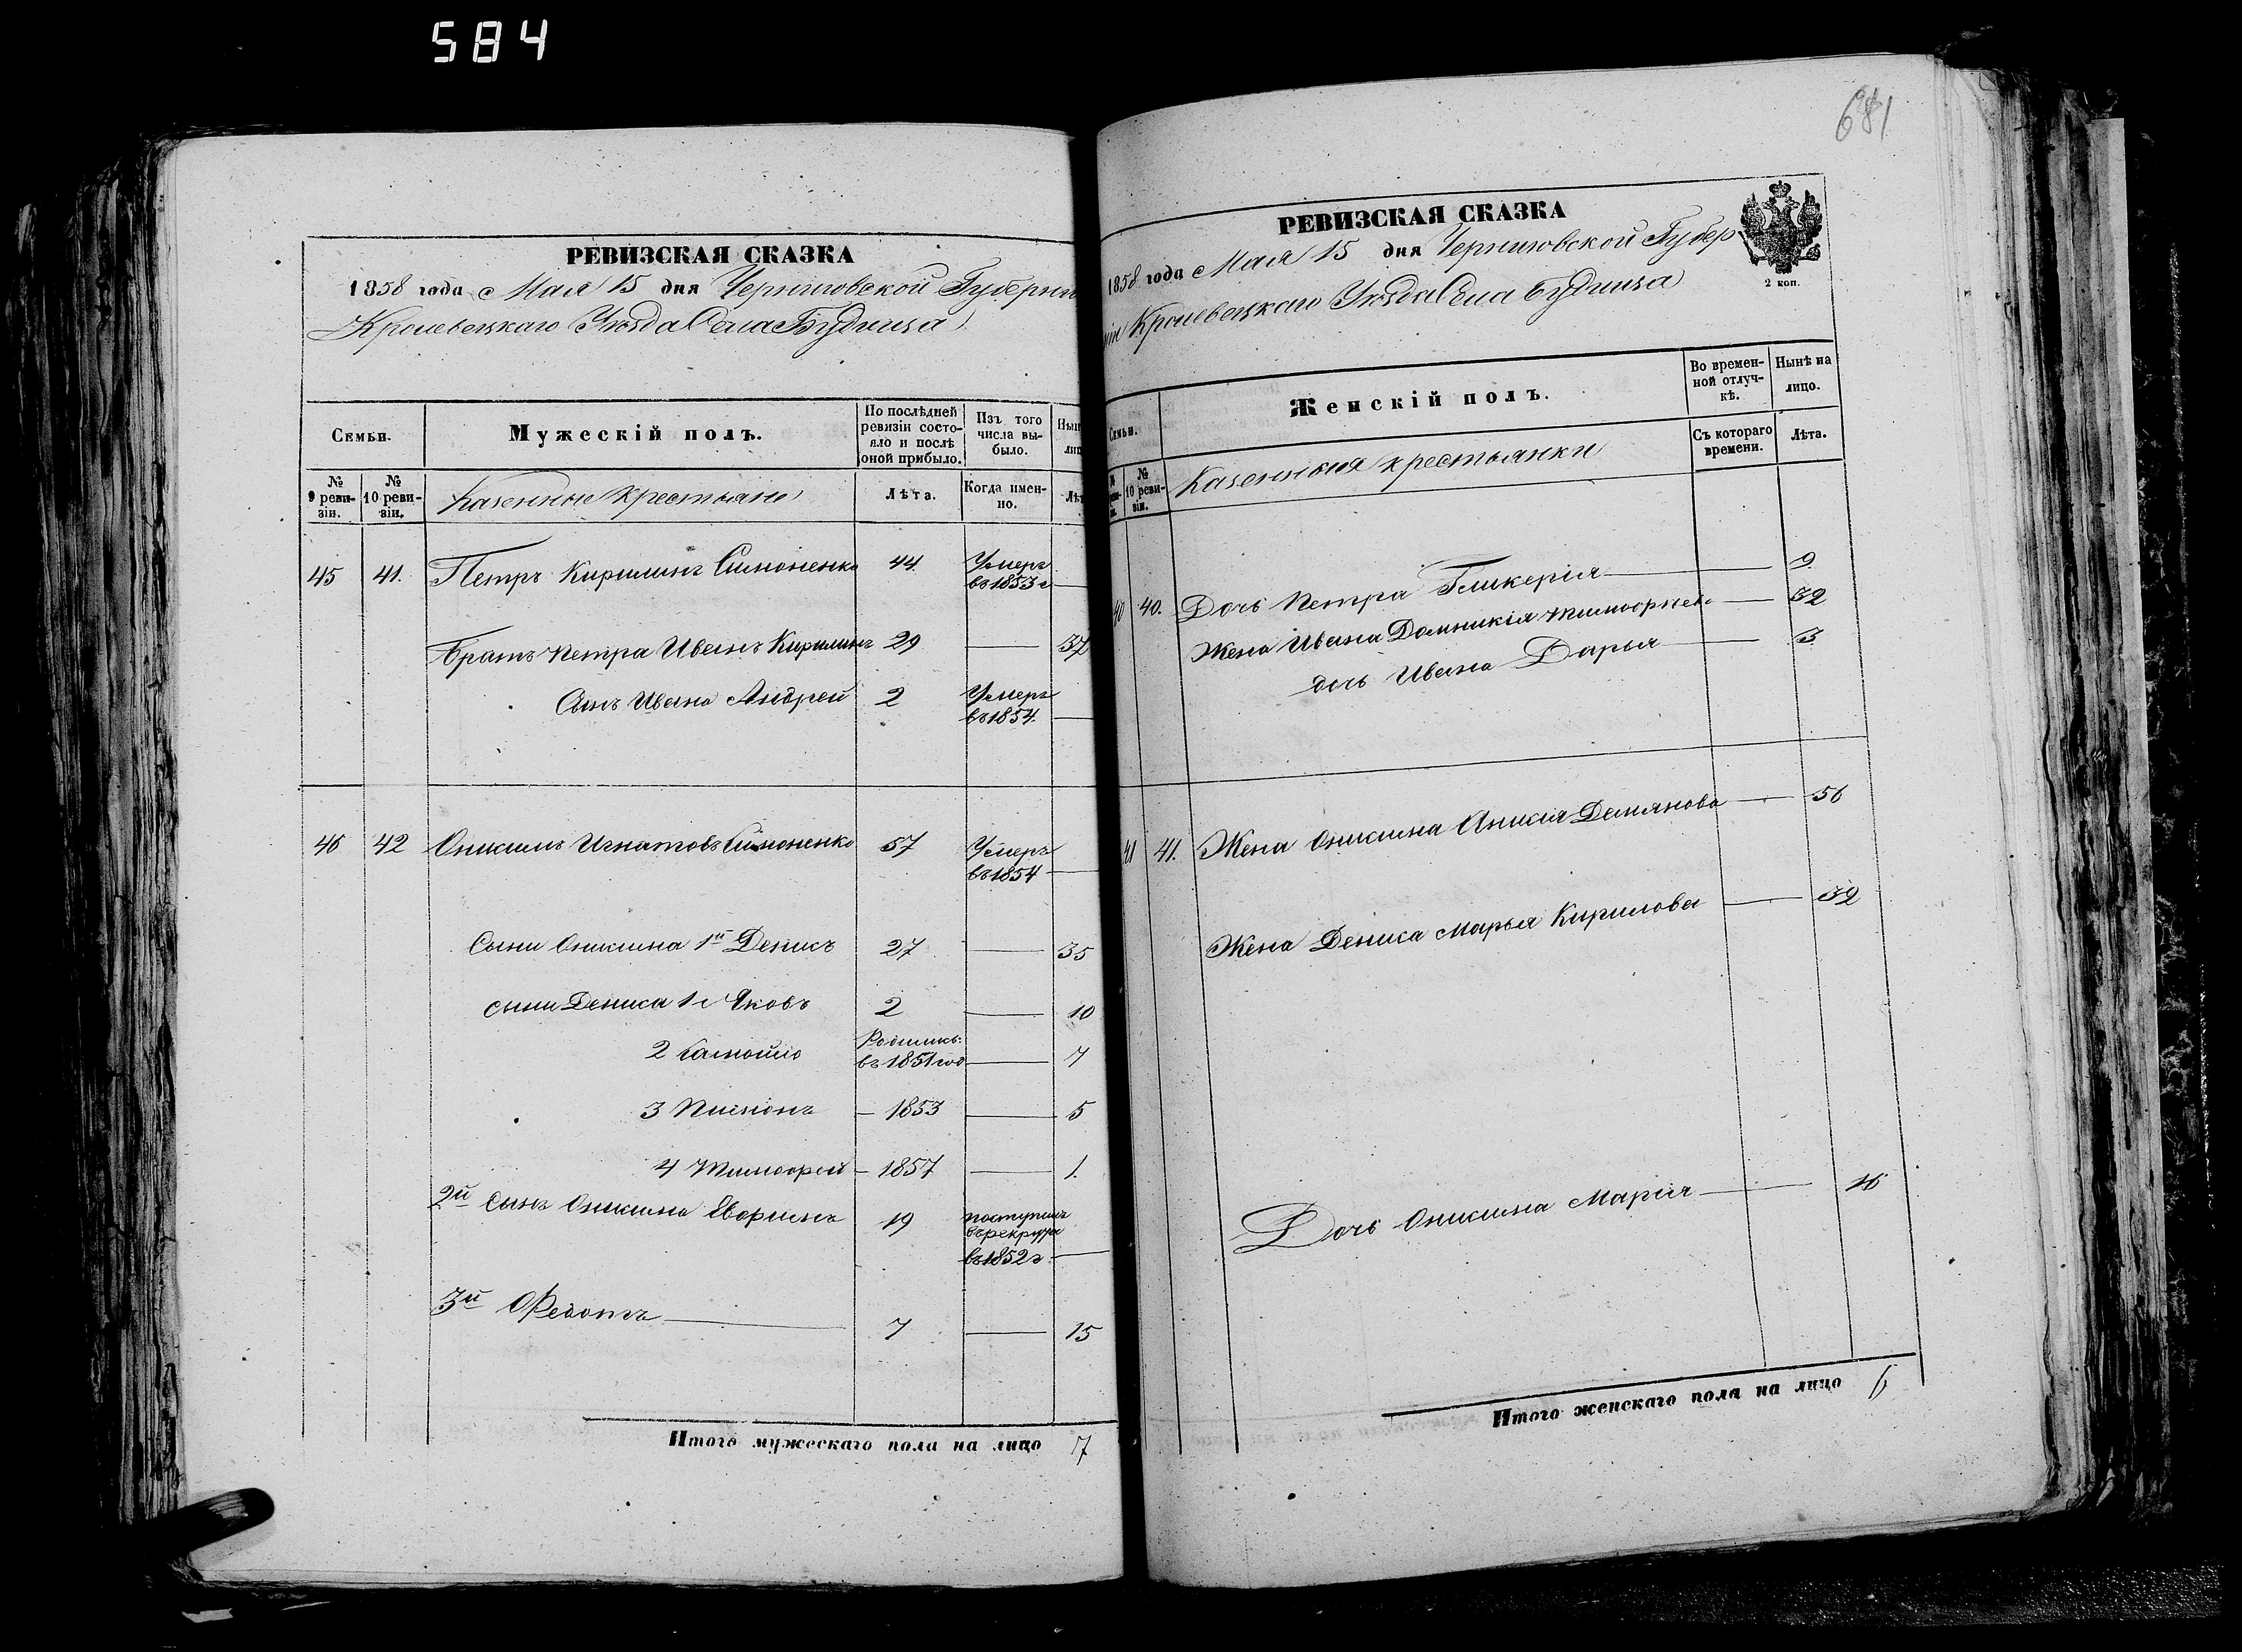 584
РЕВИЗСКАЯ СКАЗКА
1858 года Мая 15 дня Черниговской Губерніи
Кролевецкаго Уѣзда Села Будища
Семьи.
Мужескій полъ.
По послѣдней ревизіи состояло и послѣ оной прибыло.
Изъ того числа выбыло.
№ 9 ревизіи.
№ 10 ревизіи.
Казенные крестьяне
Лѣта.
Когда именно.
45 41. Петръ Кирилинъ Симоненко 44 Умеръ въ 1853 г
Братъ Петра Иванъ Кирилинъ 29 — 37
Сынъ Ивана Андрей 2 Умеръ въ 1854
46 42 Онисимъ Игнатовъ Симоненко 57 Умеръ въ 1854
Сыни Онисима 1й Денисъ 27 — 35
сыни Дениса 1й Яковъ 2 — 10
2 Самойло Родились въ 1851 год — 7
3 Пименъ — 1853 — 5
4 Тимофей — 1857 — 1.
2й Сынъ Онисима 19 поступилъ въ рекруты въ 1852 г
3й Федотъ 7 — 15
Итого мужескаго пола на лицо 7
681
РЕВИЗСКАЯ СКАЗКА
1858 года Мая 15 дня Черниговской Губер
ніи Кролевецкаго Уѣзда Села Будища
2 коп.
Семьи.
Женскій полъ.
Во временной отлучкѣ.
Нынѣ на лицо.
№ 10 ревизіи.
Казенныя крестьянки
Съ котораго времени.
Лѣта.
40 40. Дочь Петра Гликерія — 9
Жена Ивана Домникія Тимофеева — 32
дочь Ивана Дарья — 3
41 41. Жена Онисима Анисія Демянова — 56
Жена Дениса Марья Кирилова — 32
Дочь Онисима Марія — 16
Итого женскаго пола на лицо 6